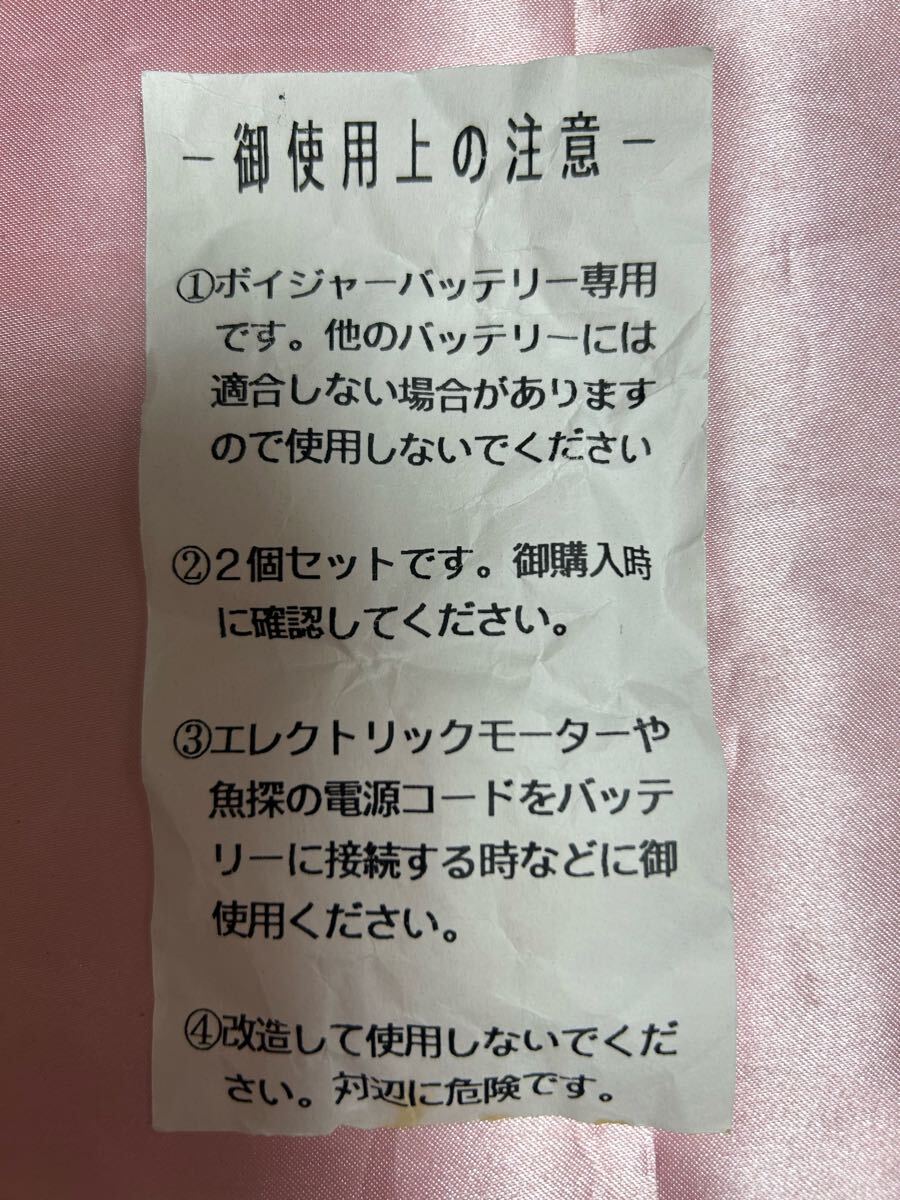 －御使用上の注意－
①ボイジャーバッテリー専用
です。他のバッテリーには
適合しない場合があります
ので使用しないでください
②２個セットです。御購入時
に確認してください。
③エレクトリックモーターや
魚探の電源コードをバッテ
リーに接続する時などに御
使用ください。
④改造して使用しないでくだ
さい。対辺に危険です。